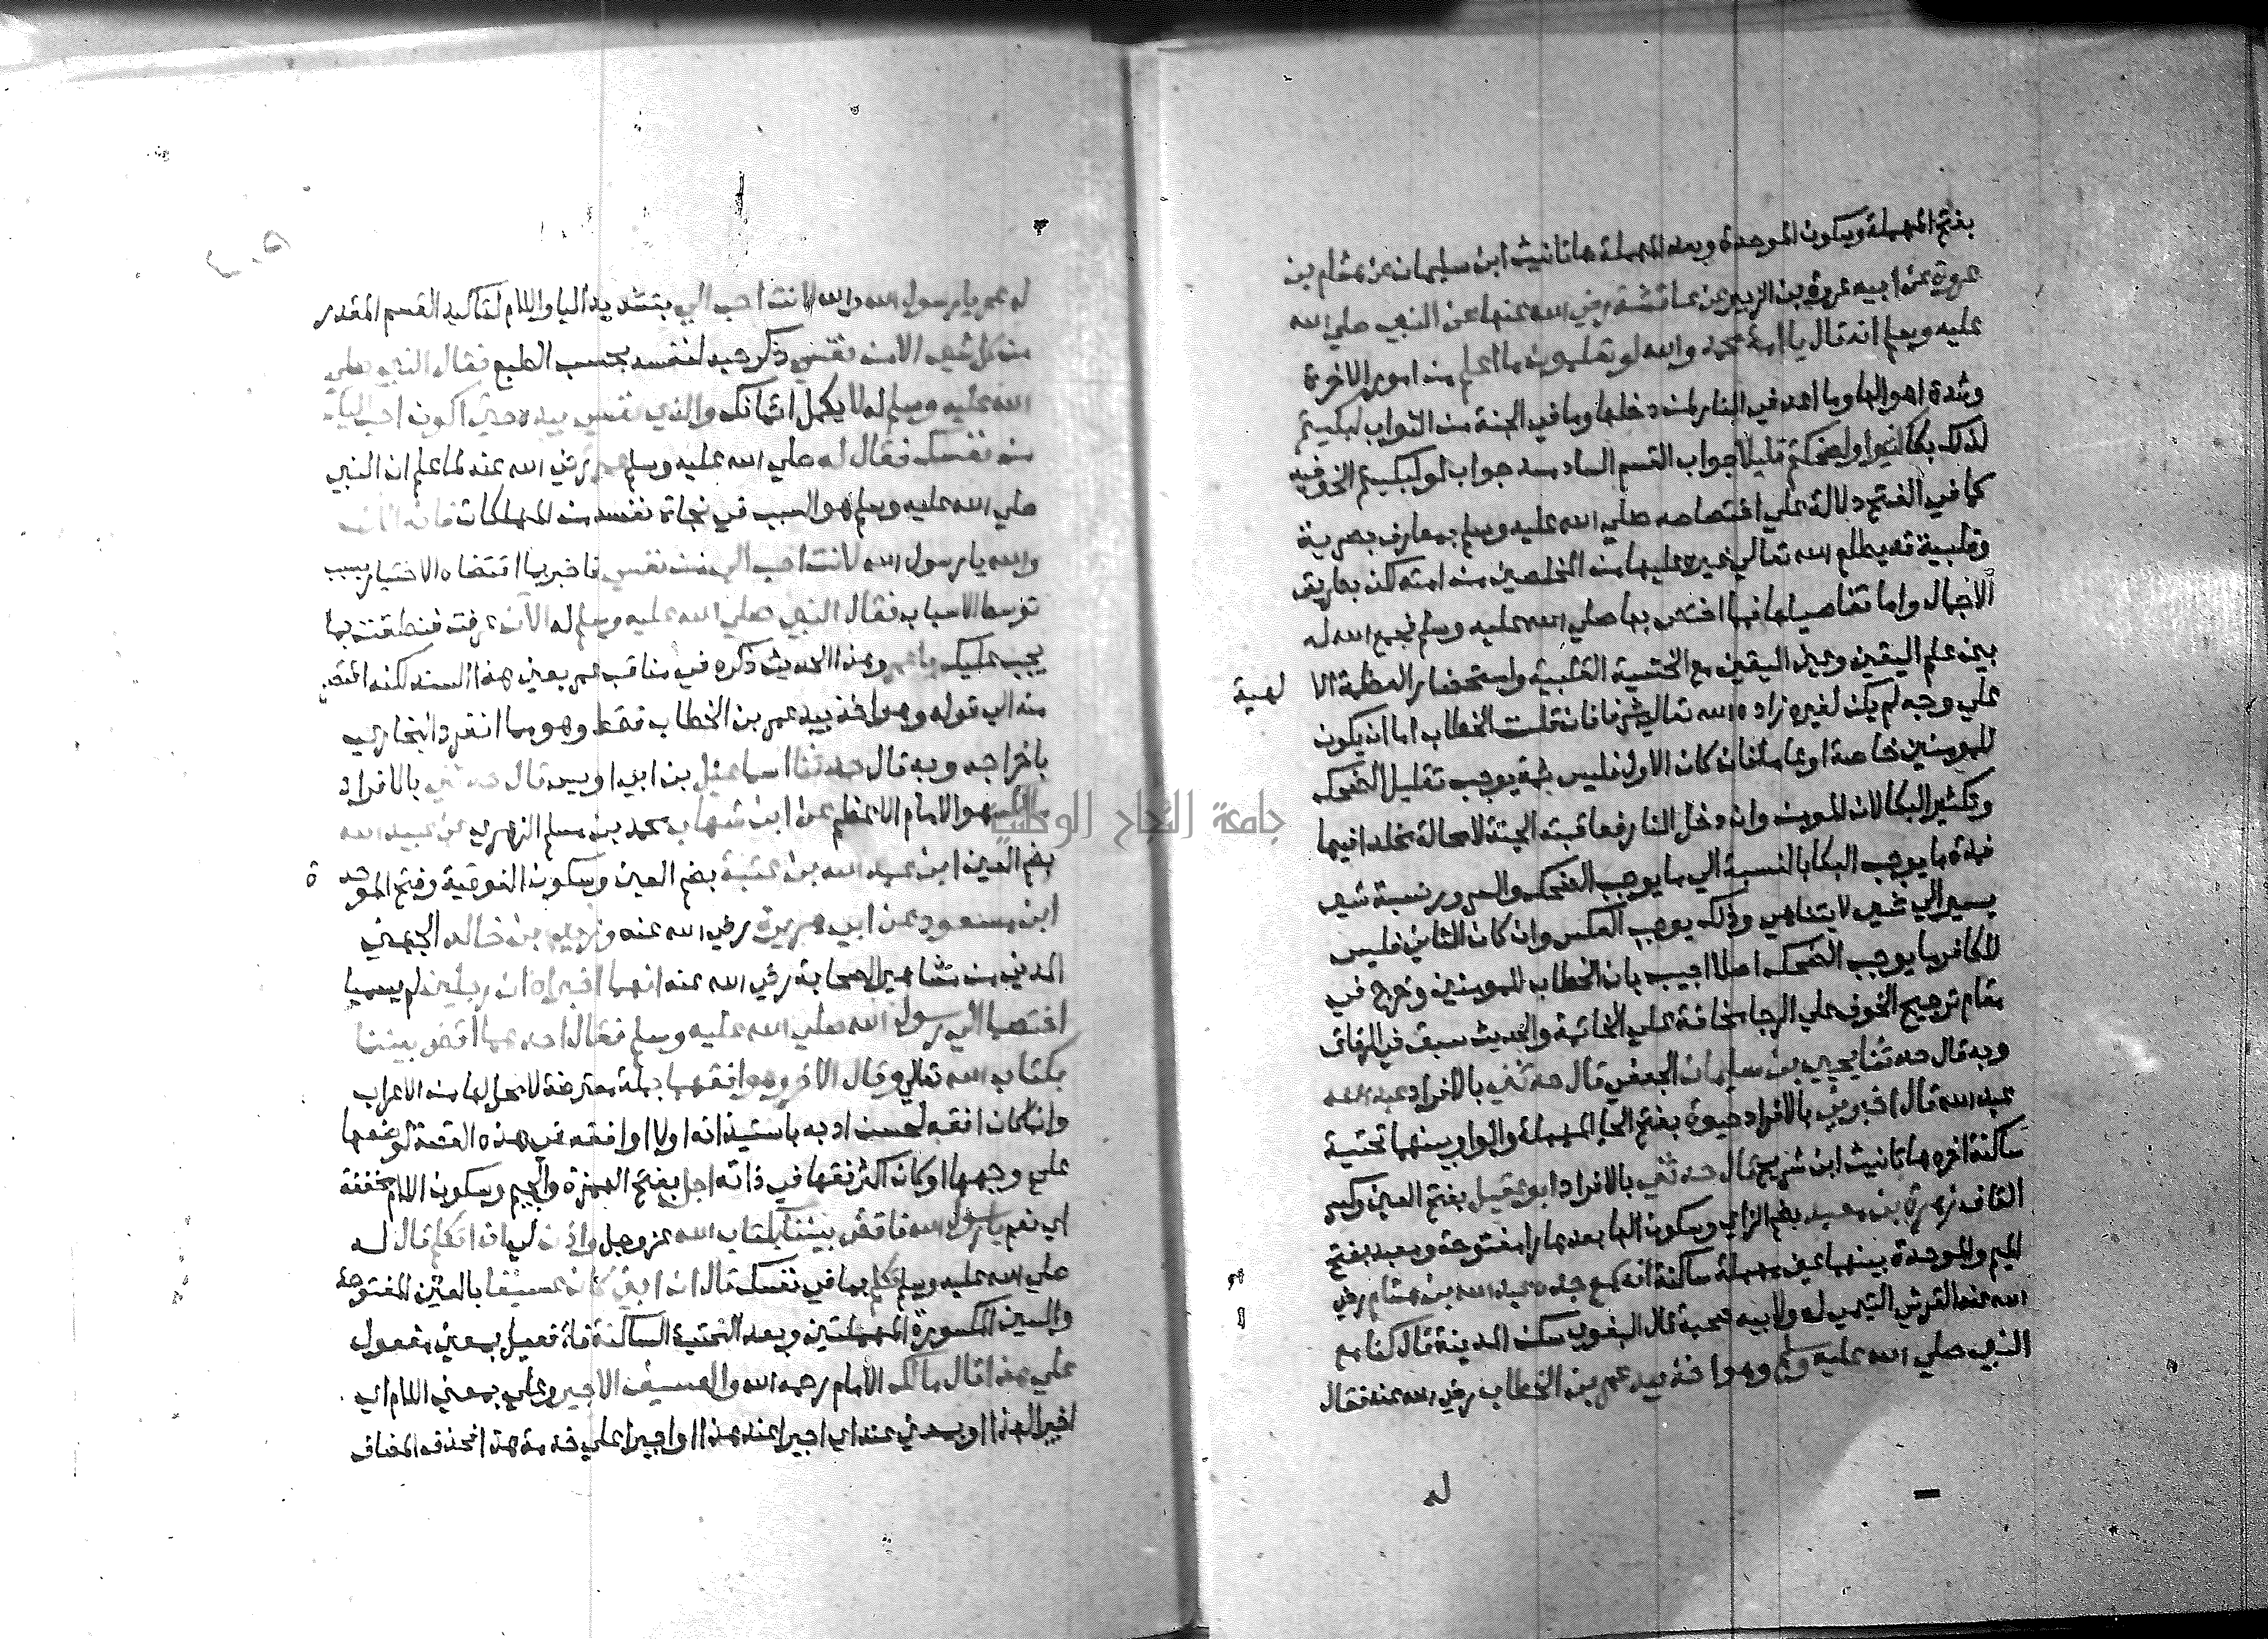 بفتح المهملة وسكون الموحدة وبعد المهملة ها تانيث ابن سليمان عن هشام بن
عروة عن ابيه عروة بن الزبير عن عائشة رضي الله عنها عن النبي صلي الله
عليه وسلم انه قال يا امة محمد والله لو تعلمون ما اعلم من امور الاخرة
وشدة اهوالها وما اعد في النار لمن دخلها وما في الجنة من الثواب لبكيتم
لذلك بكا كثيرا ولضحكتم قليلا جواب القسم الساد مسد جواب لو لبكيتم الخ وفيه
كما في الفتح دلالة علي اختصاصه صلي الله عليه وسلم بمعارف بصرية
وقلبية قد يطلع الله تعالي غيره عليها من المخلصين من امته لكن بطريق
الاجمال واما تفاصيلها فمما اختص بها صلي الله عليه وسلم فجمع الله له
بين علم اليقين وعين اليقين مع الخشية القلبية واستحضار العظمة الا لهية
علي وجه لم يكن لغيره زاده الله تعالي شرفا فان قلت الخطاب اما ان يكون
للمومنين خاصة او عاما فان كان الاول فليس ثمة يوجب تقليل الضحك
وتكثير البكا لان المومن وان دخل النار فعاقبته الجنة لا محالة مخلدا فيها
فمدة ما يوجب البكا بالنسبة الي ما يوجب الضحك والسرور نسبة شي
يسير الي شي لا يتناهي وذلك يوجب العكس وان كان الثاني فليس
للكافر ما يوجب الضحك اصلا اجيب بان الخطاب للمومنين وخرج في
مقام ترجيح الخوف علي الرجا مخافة علي الخاتمة والحديث سبق في الرقاق
وبه قال حدثنا يحيي بن سليمان الجعفي قال حدثني بالافراد عبد الله
عبد الله قال اخبرني بالافراد حيوة بفتح الحا المهملة والواو بينهما تحتية
ساكنة اخره ها تانيث ابن شريح قال حدثني بالافراد ابو عقيل بفتح العين وكسر
القاف زهرة بن معبد بضم الزاي وسكون الها بعدها را مفتوحة ومعبد بفتح
الميم والموحدة بينهما عين مهملة ساكنة انه سمع جده عبد الله بن هشام رضي
الله عنه القرشي التيمي له ولابيه صحبة قال البغوي سكن المدينة قال كنا مع
النبي صلي الله عليه وسلم وهو اخذ بيد عمر بن الخطاب رضي الله عنه فقال
له
له عمر يا رسول الله والله لانت احب الي بتشديد اليا واللام لتاكيد القسم المقدر
من كل شي الا من نفسي ذكر حبه لنفسه بحسب الطبع فقال النبي صلي
الله عليه وسلم له لا يكمل ايمانك والذي نفسي بيده حتي اكون احب اليك
من نفسك فقال له صلي الله عليه وسلم عمر رضي الله عنه لما علم ان النبي
صلي الله عليه وسلم هو السبب في نجاة نفسه من المهلكات فانه الان
والله يا رسول الله لانت احب الي من نفسي فاخبر بما اقتضاه الاختيار بسبب
توسط الاسباب فقال النبي صلي الله عليه وسلم له الان عرفت فنطقت بما
يجب عليك يا عمر وهذا الحديث ذكره في مناقب عمر بعين هذا السند لكنه اختصر
منه الي قوله وهو اخذ بيد عمر بن الخطاب فقط وهو مما انفرد البخاري
باخراجه وبه قال حدثنا اسماعيل بن ابي اويس قال حدثني بالافراد
مالك هو الامام الاعظم عن ابن شهاب محمد بن مسلم الزهري عن عبيد الله
بضم العين ابن عبد الله بن عتبة بضم العين وسكون الفوقية وفتح الموحدة
ابن مسعود عن ابي هريرة رضي الله عنه وزيد بن خالد الجهني
المدني من مشاهير الصحابة رضي الله عنه انهما اخبراه ان رجلين لم يسميا
اختصما الي رسول الله صلي الله عليه وسلم فقال احدهما اقض بيننا
بكتاب الله تعالي وقال الاخر وهو افقههما جملة معترضة لا محل لها من الاعراب
وانما كان افقه لحسن ادبه باستيذانه اولا او افقه في هذه القصة لوصفها
علي وجهها او كان اكثر فقها في ذاته اجل بفتح الهمزة والجيم وسكون اللام مخففة
اي نعم يا رسول الله فاقض بيننا بكتاب الله عز وجل واذن لي ان اتكلم قال له
صلي الله عليه وسلم تكلم بما في نفسك قال ان ابني كان عسيفا بالعين المفتوحة
والسين المكسورة المهملتين وبعد التحتية الساكنة فاء فعيل بمعني مفعول
علي هذا قال مالك الامام رحمه الله والعسيف الاجير وعلي بمعني اللام اي
اجير الهذا او بمعني عند اي اجيرا عند هذا او اجيرا علي خدمة هذا فحذف المضاف